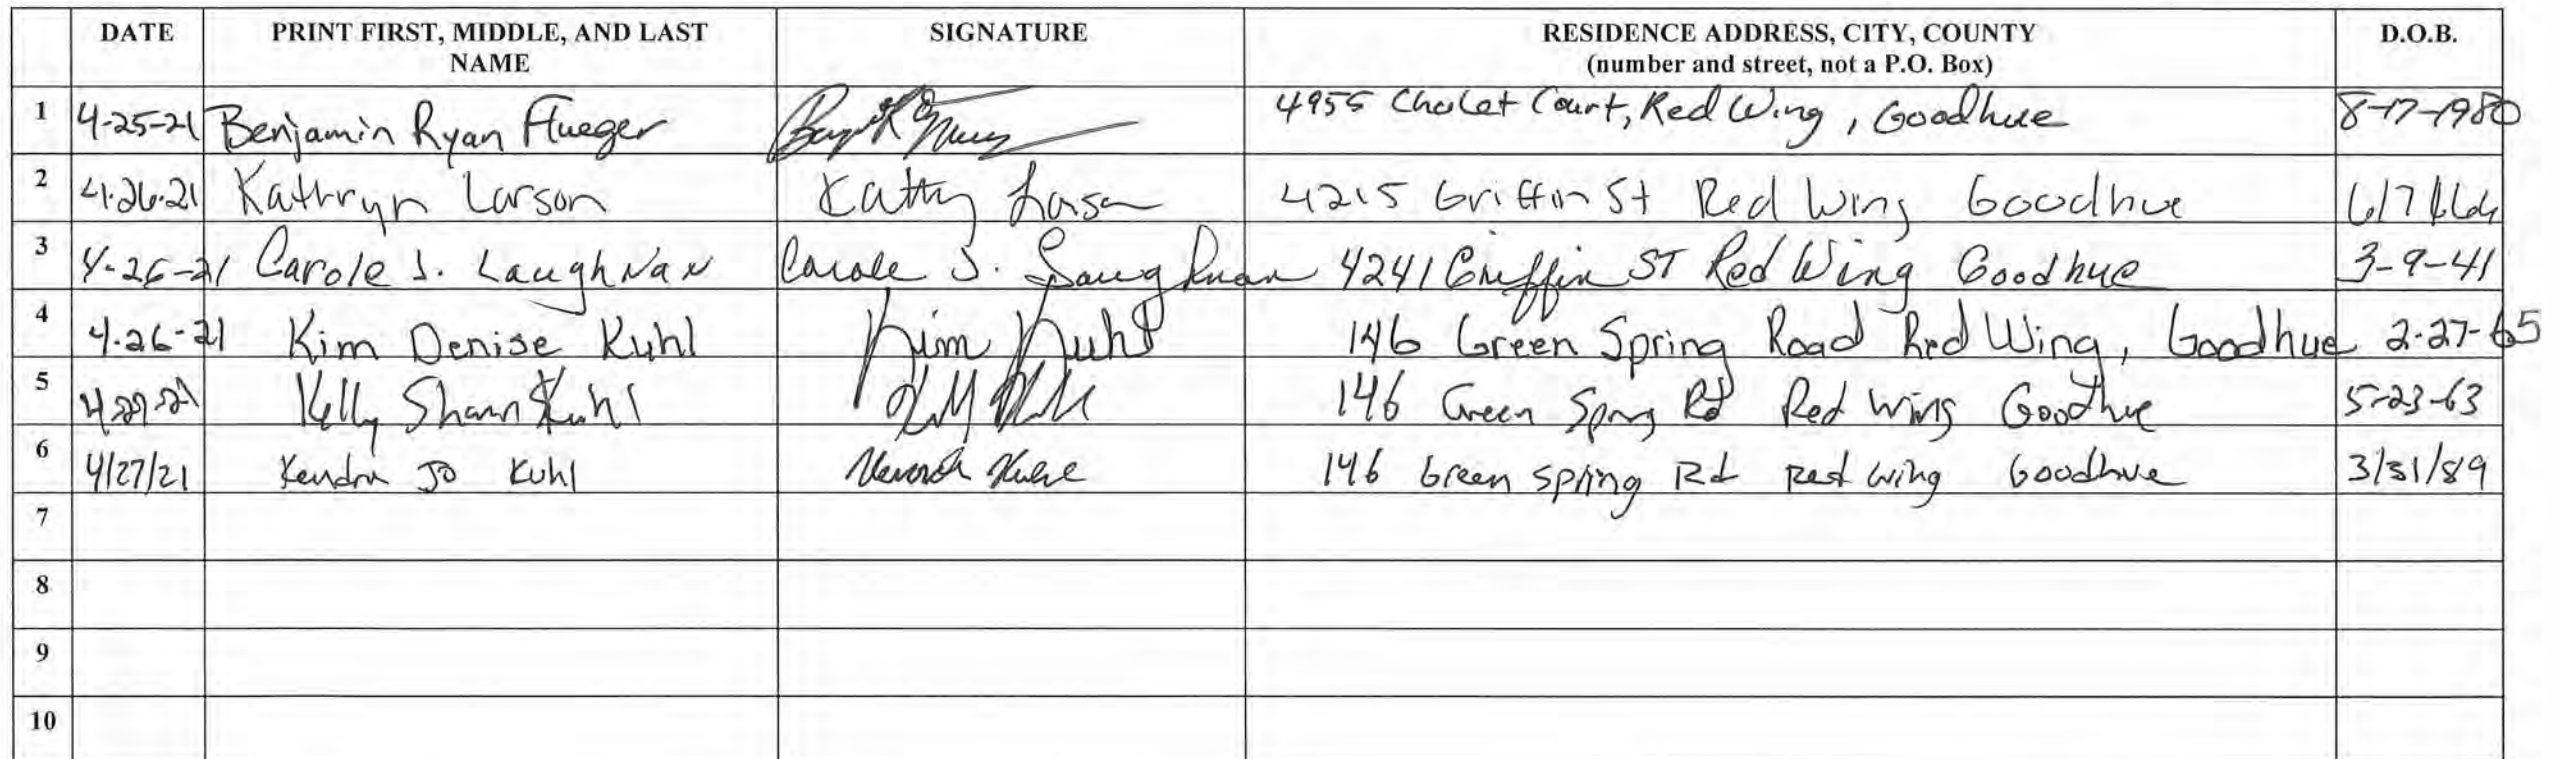 DATE PRINT FIRST, MIDDLE, AND LAST NAME SIGNATURE RESIDENCE ADDRESS, CITY, COUNTY (number and street, not a P.O. Box) D.O.B.
1 4-25-21 Benjamin Ryan Flueger 4955 Chalet Court, Red Wing, Goodhue 8-17-1980
2 4.26.21 Kathryn Larson Kathy Larson 4215 Griffin St Red Wing Goodhue 6/7/64
3 4-26-21 Carole J. Laughnan Carole J. Laughnan 4241 Griffin ST Red Wing Goodhue 3-9-41
4 4.26-21 Kim Denise Kuhl Kim Kuhl 146 Green Spring Road Red Wing, Goodhue 2-27-65
5 Kelly Shawn Kuhl 146 Green Spring Rd Red Wing Goodhue 5-23-63
6 4/27/21 Kendra Jo Kuhl Kendra Kuhl 146 Green Spring Rd Red Wing Goodhue 3/31/89
7
8
9
10